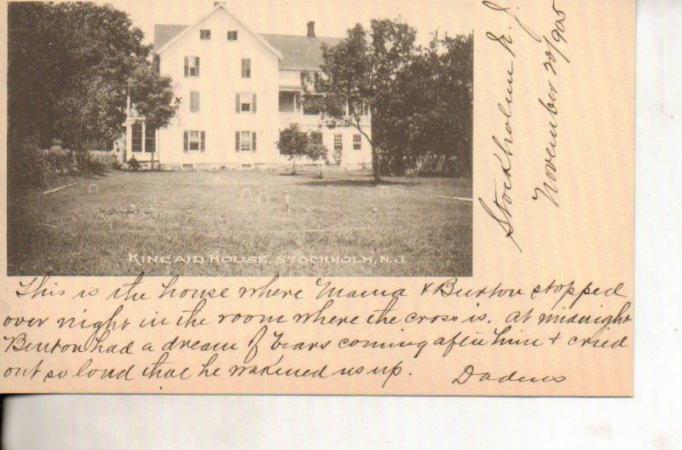 Stockholm N.J.
November 20/905
KINCAID HOUSE, STOCKHOLM, N.J.
This is the house where Mama & Burton stopped
over night in the room where the cross is. At midnight
Burton had a dream of bears coming after him & cried
out so loud that he wakened us up.